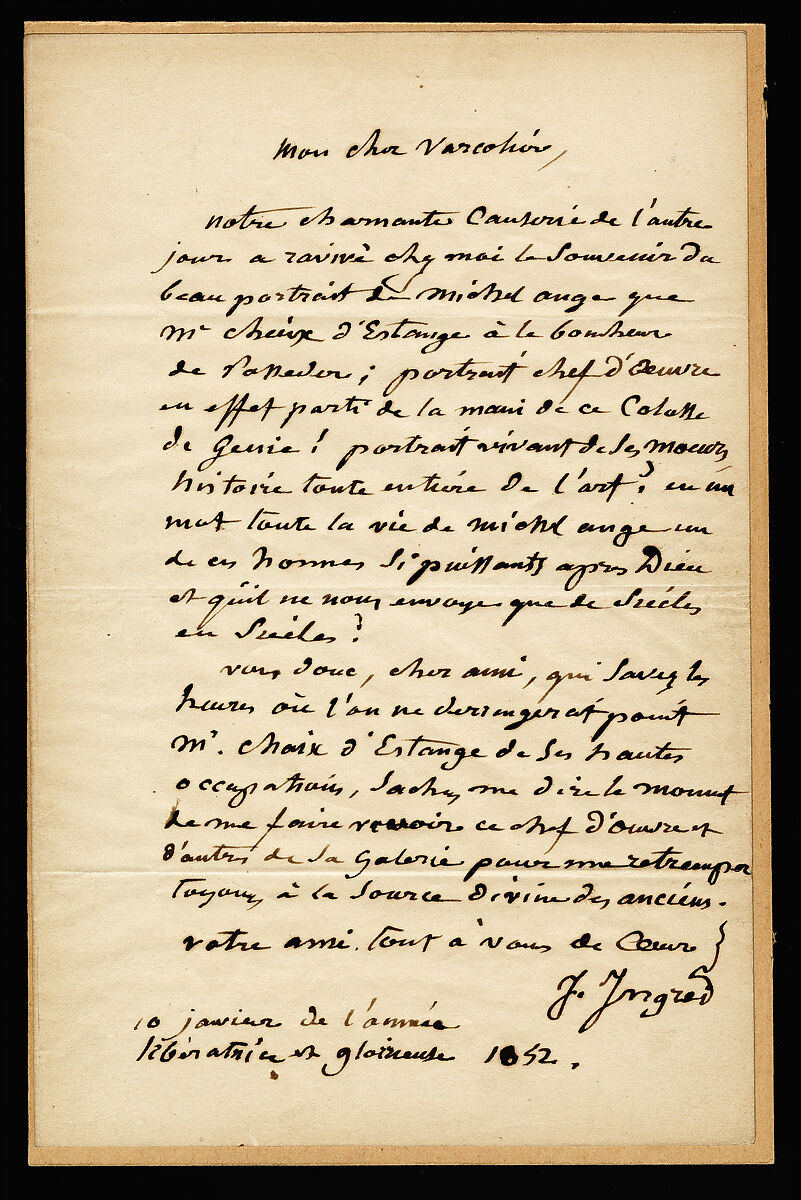 Mon cher Varcolier,
notre charmante Causerie de l'autre
jour a ravivé chez moi le Souvenir du
beau portrait de Michel ange que
Mr cheix d'Estange à le bonheur
de Posseder ; portrait chef d'Oeuvre
en effet parti de la main de ce Colosse
de Genie ! portrait vivant de Ses Moeurs
histoire toute entière de l'art ? en un
mot toute la vie de Michel ange un
de ces hommes Si puissants apres Dieu
et qu'il ne nous envoye que de Siècles
en Siècles ?
vous donc, cher ami, qui Savez les
heures où l'on ne derangerat point
Mr. Chaix d'Estange de Ses hautes
occupations, Sachez me dire le moment
de me faire revoir ce chef d'Oeuvre et
d'autres de Sa Galerie pour me retremper
toujours à la Source Divine des anciens.
votre ami. tout à vous de Coeur
J. Ingres
10 janvier de l'année
libératrice et glorieuse 1852.